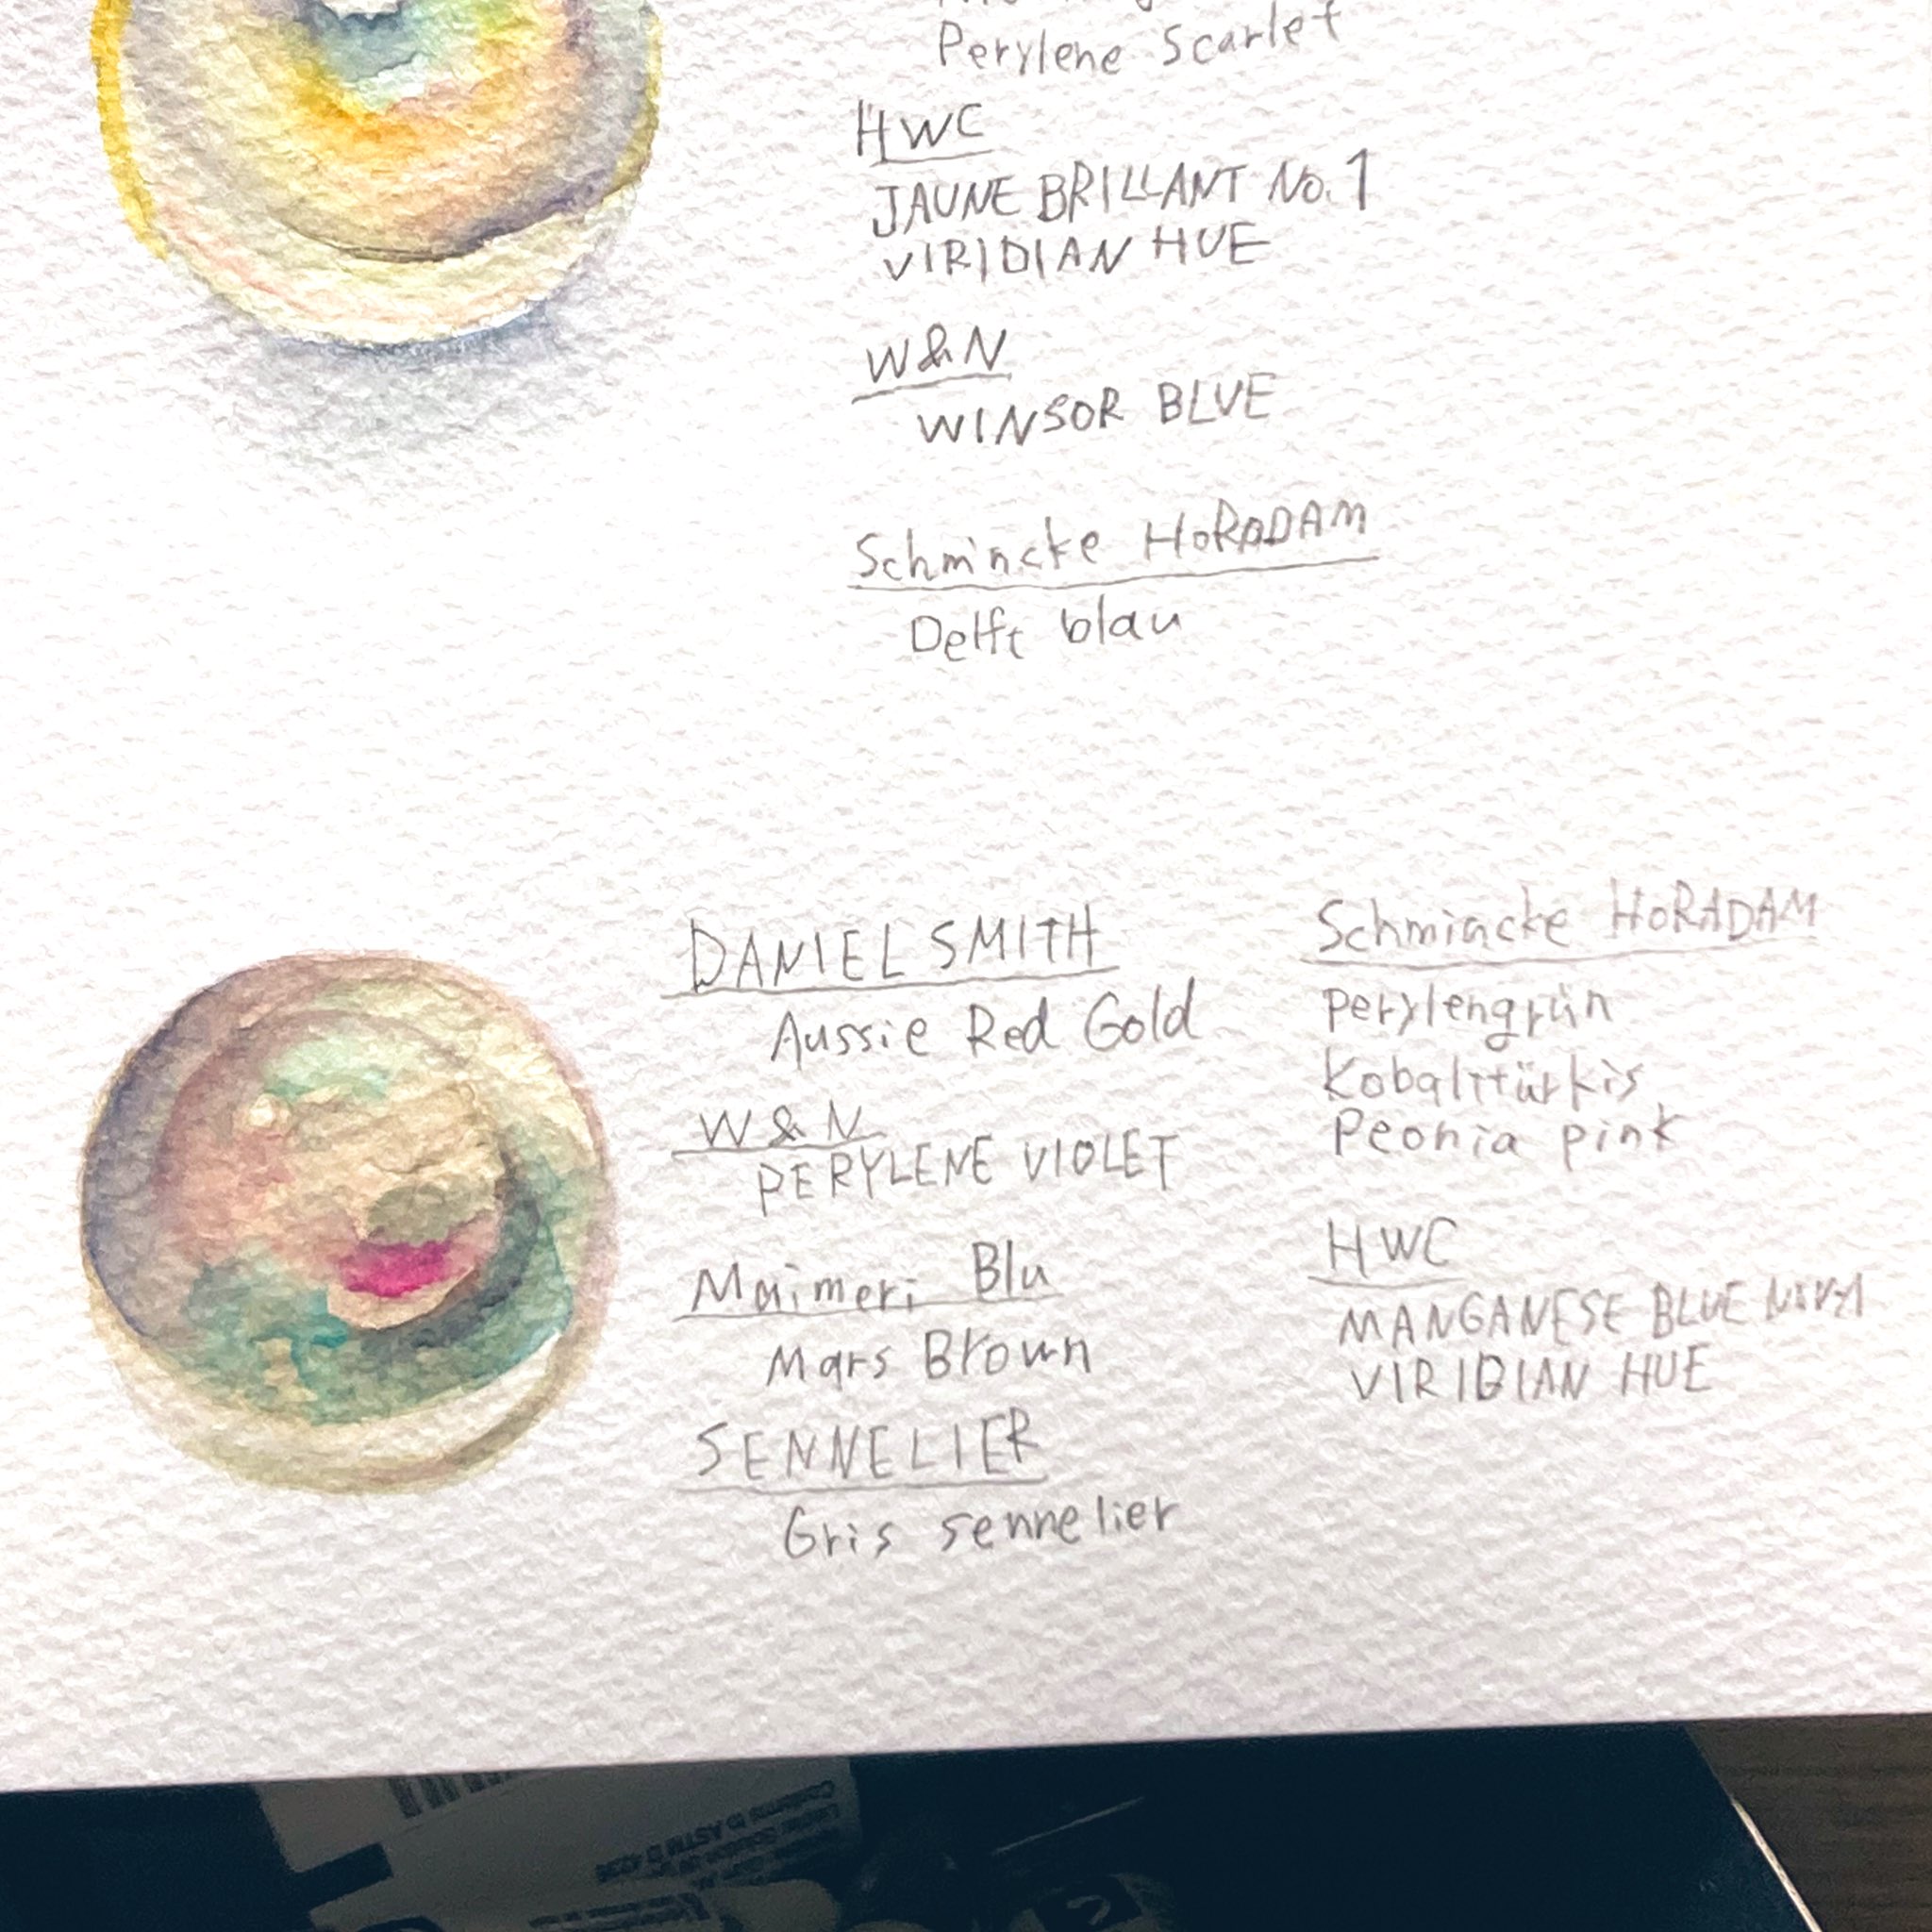 Perylene Scarlet
HWC
JAUNE BRILLANT No.1
VIRIDIAN HUE
W&N
WINSOR BLUE
Schmincke HORADAM
Delft blau
DANIEL SMITH
Aussie Red Gold
W&N
PERYLENE VIOLET
Maimeri Blu
Mars Brown
SENNELIER
Gris sennelier
Schmincke HORADAM
Perylengrün
Kobalttürkis
Peonia pink
HWC
MANGANESE BLUE
VIRIDIAN HUE
Conforms to ASTM D 4236